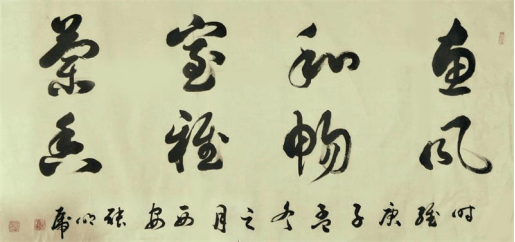 惠风
和畅
室雅
蘭香
时维庚子孟冬之月西安张